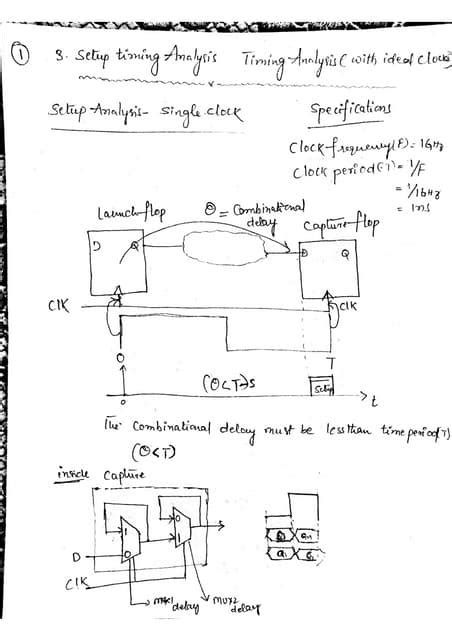 ①
3. Setup timing Analysis Timing Analysis (with ideal Clocks)
Setup Analysis - Single clock
Specifications
Clock frequency (F) = 1GHz
Clock period (T) = 1/F
= 1/1GHz
= 1ns
Launch flop
Θ = Combinational
delay
Capture flop
D Q
D Q
Clk
Clk
0
T
(Θ<T)-S
Setup
0
t
The Combinational delay must be less than time period (T)
(Θ<T)
inside Capture
1
0
0
1
D
Clk
mux1
delay
mux2
delay